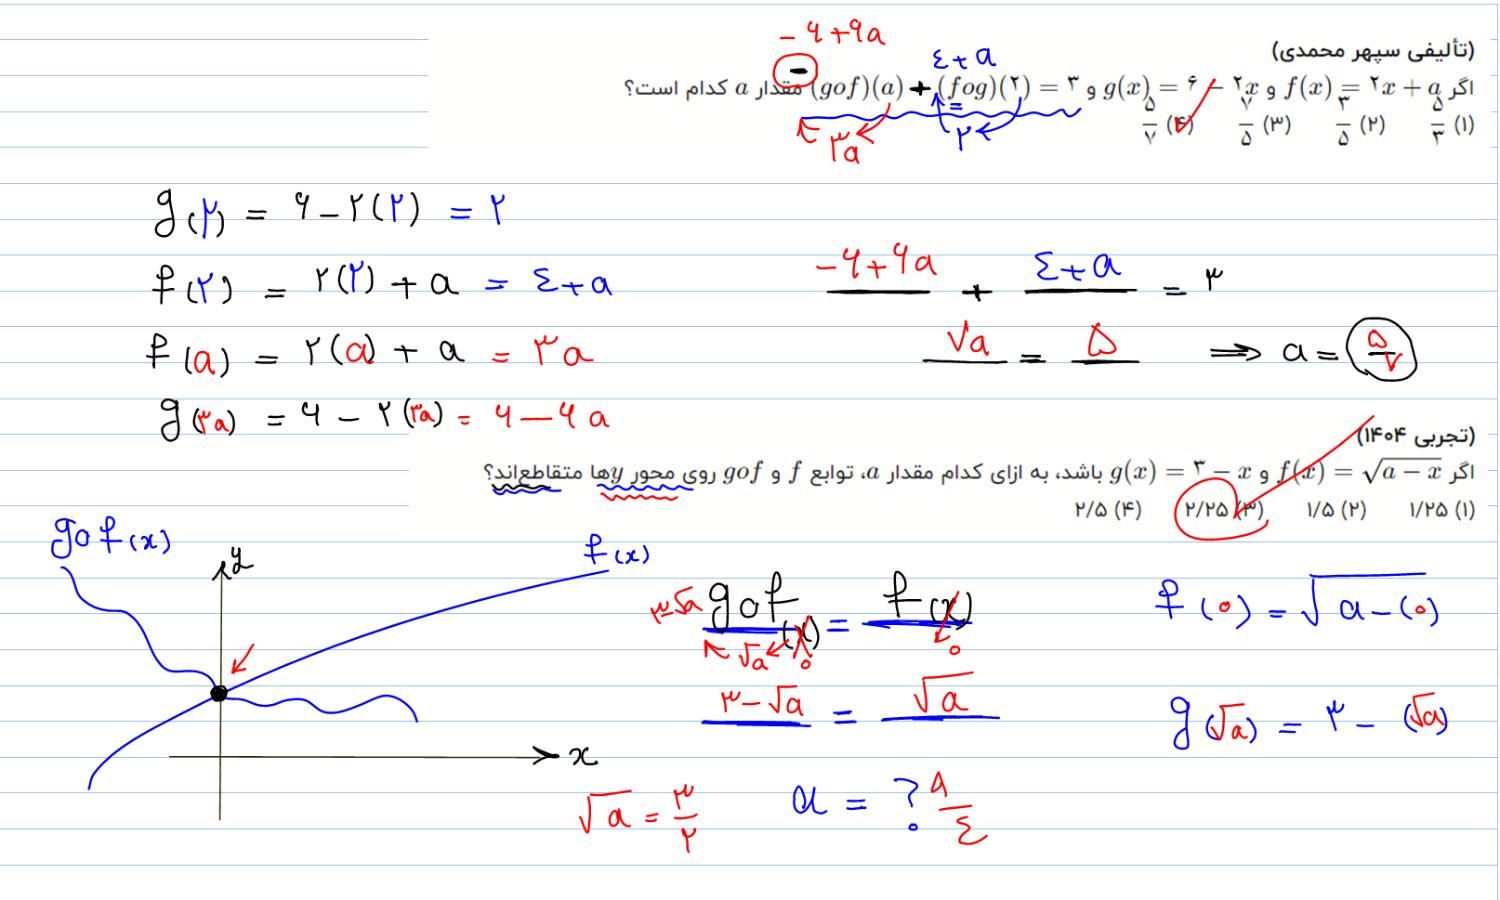 (تألیفی سپهر محمدی)
-۶+۶a
۴+a
اگر f(x) = ۲x + a و g(x) = ۶ - ۲x و (gof)(a) + (fog)(۲) = ۳ - مقدار a کدام است؟
۱) ۵/۳ ۲) ۳/۵ ۳) ۷/۵ ۴) ۵/۷
۳a ۲
g(۲) = ۶ - ۲(۲) = ۲
f(۲) = ۲(۲) + a = ۴+a
-۶+۶a + ۴+a = ۳
f(a) = ۲(a) + a = ۳a
۷a = ۵ ⟹ a = ۵/۷
g(۳a) = ۶ - ۲(۳a) = ۶ - ۶a
(تجربی ۱۴۰۴)
اگر f(x) = √(a - x) و g(x) = ۳ - x باشد، به ازای کدام مقدار a، توابع f و gof روی محور yها متقاطع‌اند؟
۱) ۱/۲۵ ۲) ۱/۵ ۳) ۲/۲۵ ۴) ۲/۵
gof(x) y f(x)
۳-√a gof(x) = f(x)
√a ۰ ۰
f(۰) = √(a-(۰))
۳-√a = √a
g(√a) = ۳ - (√a)
x
√a = ۳/۲
a = ? ۹/۴